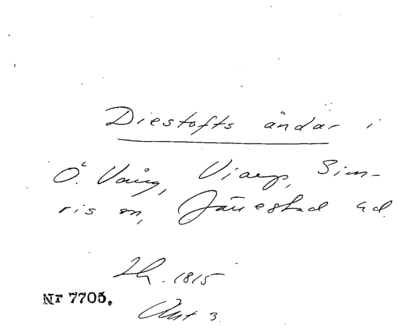 Diestofts ändar i
Ö. Vång, Viarp, Sim-
ris sn, Järrestad hd.
1815
Nr 7705.
3.